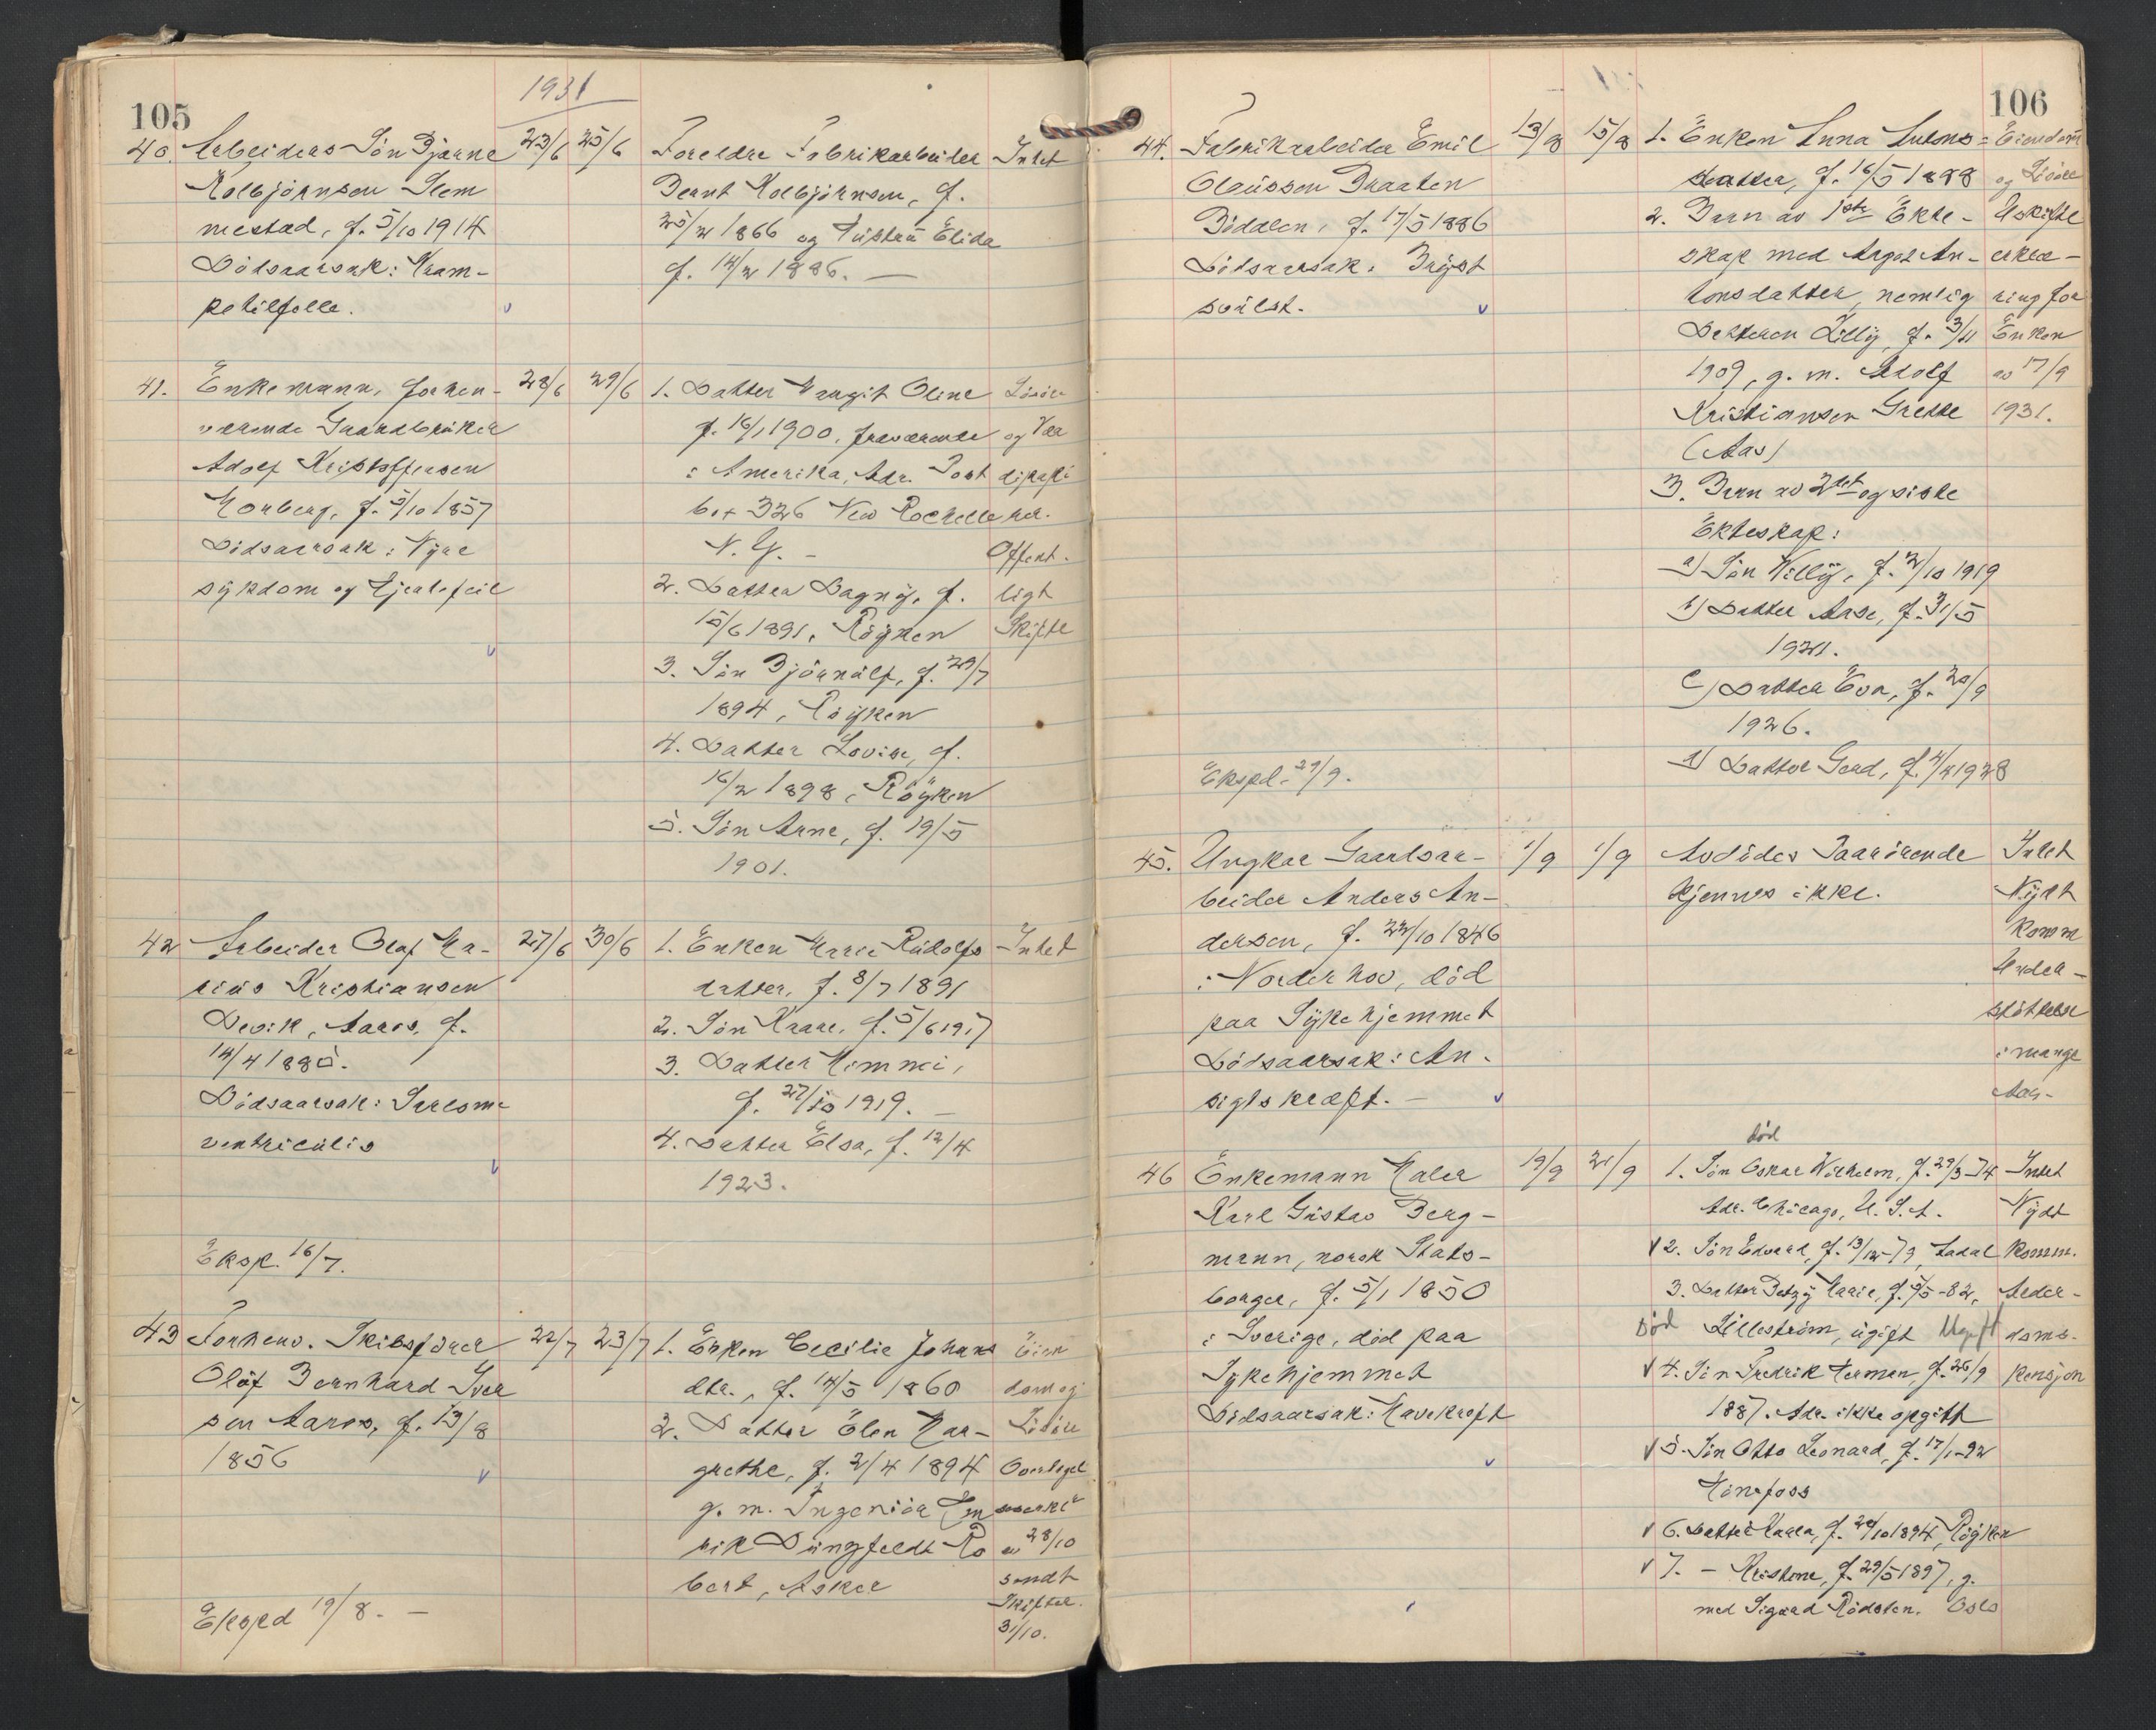 105
1931
40. Arbeiders Sön Bjarne
Kolbjörnsen Slem
mestad, f. 5/10 1914
Dödsaarsak: Kram-
petilfelle.
23/6 25/6
Foreldre Fabrikarbeider
Bernt Kolbjörnsen, f.
25/2 1866 og Hustru Elida
f. 14/2 1886. —
Intet
41. Enkemann, forhen-
værende Gaardbruker
Adolf Kristoffersen
Morberg, f. 5/10 1857
Dödsaarsak: Nyre
sykdom og Hjertefeil
28/6 29/6
1. Datter Margit Oline
f. 16/1 1900, fraværende
i Amerika, Adr. Post
box 326 New Rochelle
N. Y. —
2. Datter Dagny, f.
15/6 1891, Röyken
3. Sön Björnulf, f. 29/7
1894, Röyken
4. Datter Lovise, f.
16/2 1898, Röyken
5. Sön Arne, f. 19/5
1901.
Lösöre
og Vær
dipapi
rer.
Offent-
ligt
Skifte
42 Arbeider Olaf Ma-
rius Kristiansen
Devik, Aaros, f.
14/4 1885.
Dödsaarsak: Sarcoma
ventriculis
27/6 30/6
1. Enken Marie Rudolfs
datter, f. 8/7 1891
2. Sön Kaare, f. 5/6 1917
3. Datter Mimmi,
f. 27/10 1919. —
4. Datter Elsa, f. 12/4
1923.
Intet
Eksp. 16/7.
43 Forhenv. Skibsförer
Olaf Bernhard Iver
sen Aaros, f. 13/8
1856
22/7 23/7
1. Enken Cecilie Johans
dtr., f. 14/5 1860
2. Datter Elen Mar-
grethe, f. 2/4 1894
g. m. Ingeniör Hen
rik Düngfeldt Ro
bert, Asker
Eien
dom og
Lösöre
av 28/10
sendt
Skifter.
31/10.
Ekspd 19/8. —
106
44. Fabrikarbeider Emil
Olaussen Braaten
Bödalen, f. 17/5 1886
Dödsaarsak: Bryst
svulst.
13/8 15/8
1. Enken Anna Antons=
datter, f. 16/5 1888
2. Barn av 1ste Ekte-
skap med Aagot An-
tonsdatter, nemlig
Datteren Lilly, f. 3/11
1909, g. m. Adolf
Kristiansen Grette
(Aas)
3. Barn av 2det og siste
Ekteskap:
a) Sön Willy, f. 2/10 1919
b) Datter Aase, f. 31/5
1921.
c) Datter Eva, f. 20/9
1926.
d) Datter Gerd, f. 4/2 1928
Eiendom
og Lösöre
Uskifte
erklæ-
ring for
Enken
av 17/9
1931.
Ekspd. 29/9.
45. Ungkar Gaardsar-
beider Anders An-
dersen, f. 22/10 1846
i Norderhov, död
paa Sykehjemmet
Dödsaarsak: An-
sigtskræft. —
1/9 1/9
Avdödes Paarörende
kjennes ikke.
Intet
Nydt
Komm
Under-
stöttelse
i mange
Aar-
46 Enkemann Maler
Karl Gustav Berg-
mann, norsk Stats-
borger, f. 5/1 1850
i Sverige, död paa
Sykehjemmet
Dödsaarsak: Mavekræft
19/9 21/9
död
1. Sön Oskar Wilhelm, f. 29/3-74
Adr. Chicago, U. S. A.
2. Sön Edvard, f. 13/12-79, Aadal
3. Datter Betzy Marie, f. 9/5-82,
Död Lilleström, ugift Ugift
4. Sön Fredrik Herman, f. 26/9
1887. Adr. ikke opgitt
5. Sön Otto Leonard, f. 17/1-92
Hönefoss
6. Datter Karla, f. 20/10 1894, Röyken
7. — Kristine, f. 29/5 1897, g.
med Sigurd Rödsten. Oslo
Intet
Nydt
Komm.
Alder-
doms-
pensjon